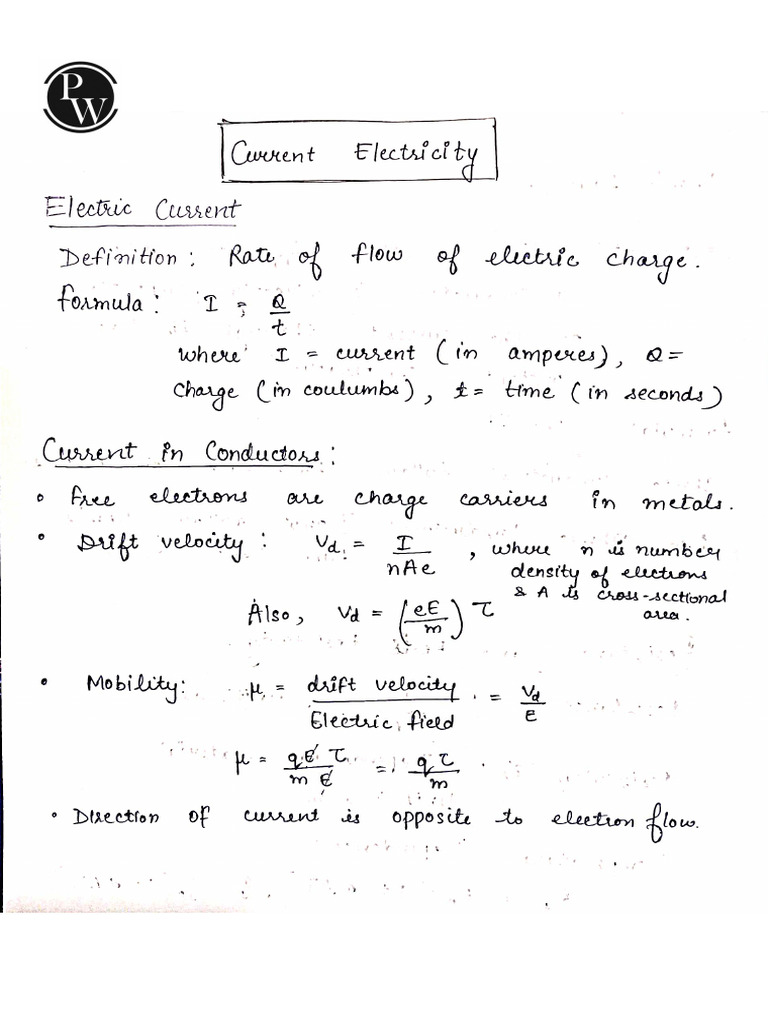 PW
Current Electricity
Electric Current
Definition: Rate of flow of electric charge.
formula: I = Q/t
where I = current (in amperes), Q =
charge (in coulumbs), t = time (in seconds)
Current in Conductors:
• free electrons are charge carriers in metals.
• Drift velocity: Vd = I/nAe, where n is number
density of electrons
& A is cross-sectional
area.
Also, Vd = (eE/m) τ
• Mobility: μ = drift velocity/Electric field = Vd/E
μ = qE τ/m E = qτ/m
• Direction of current is opposite to electron flow.